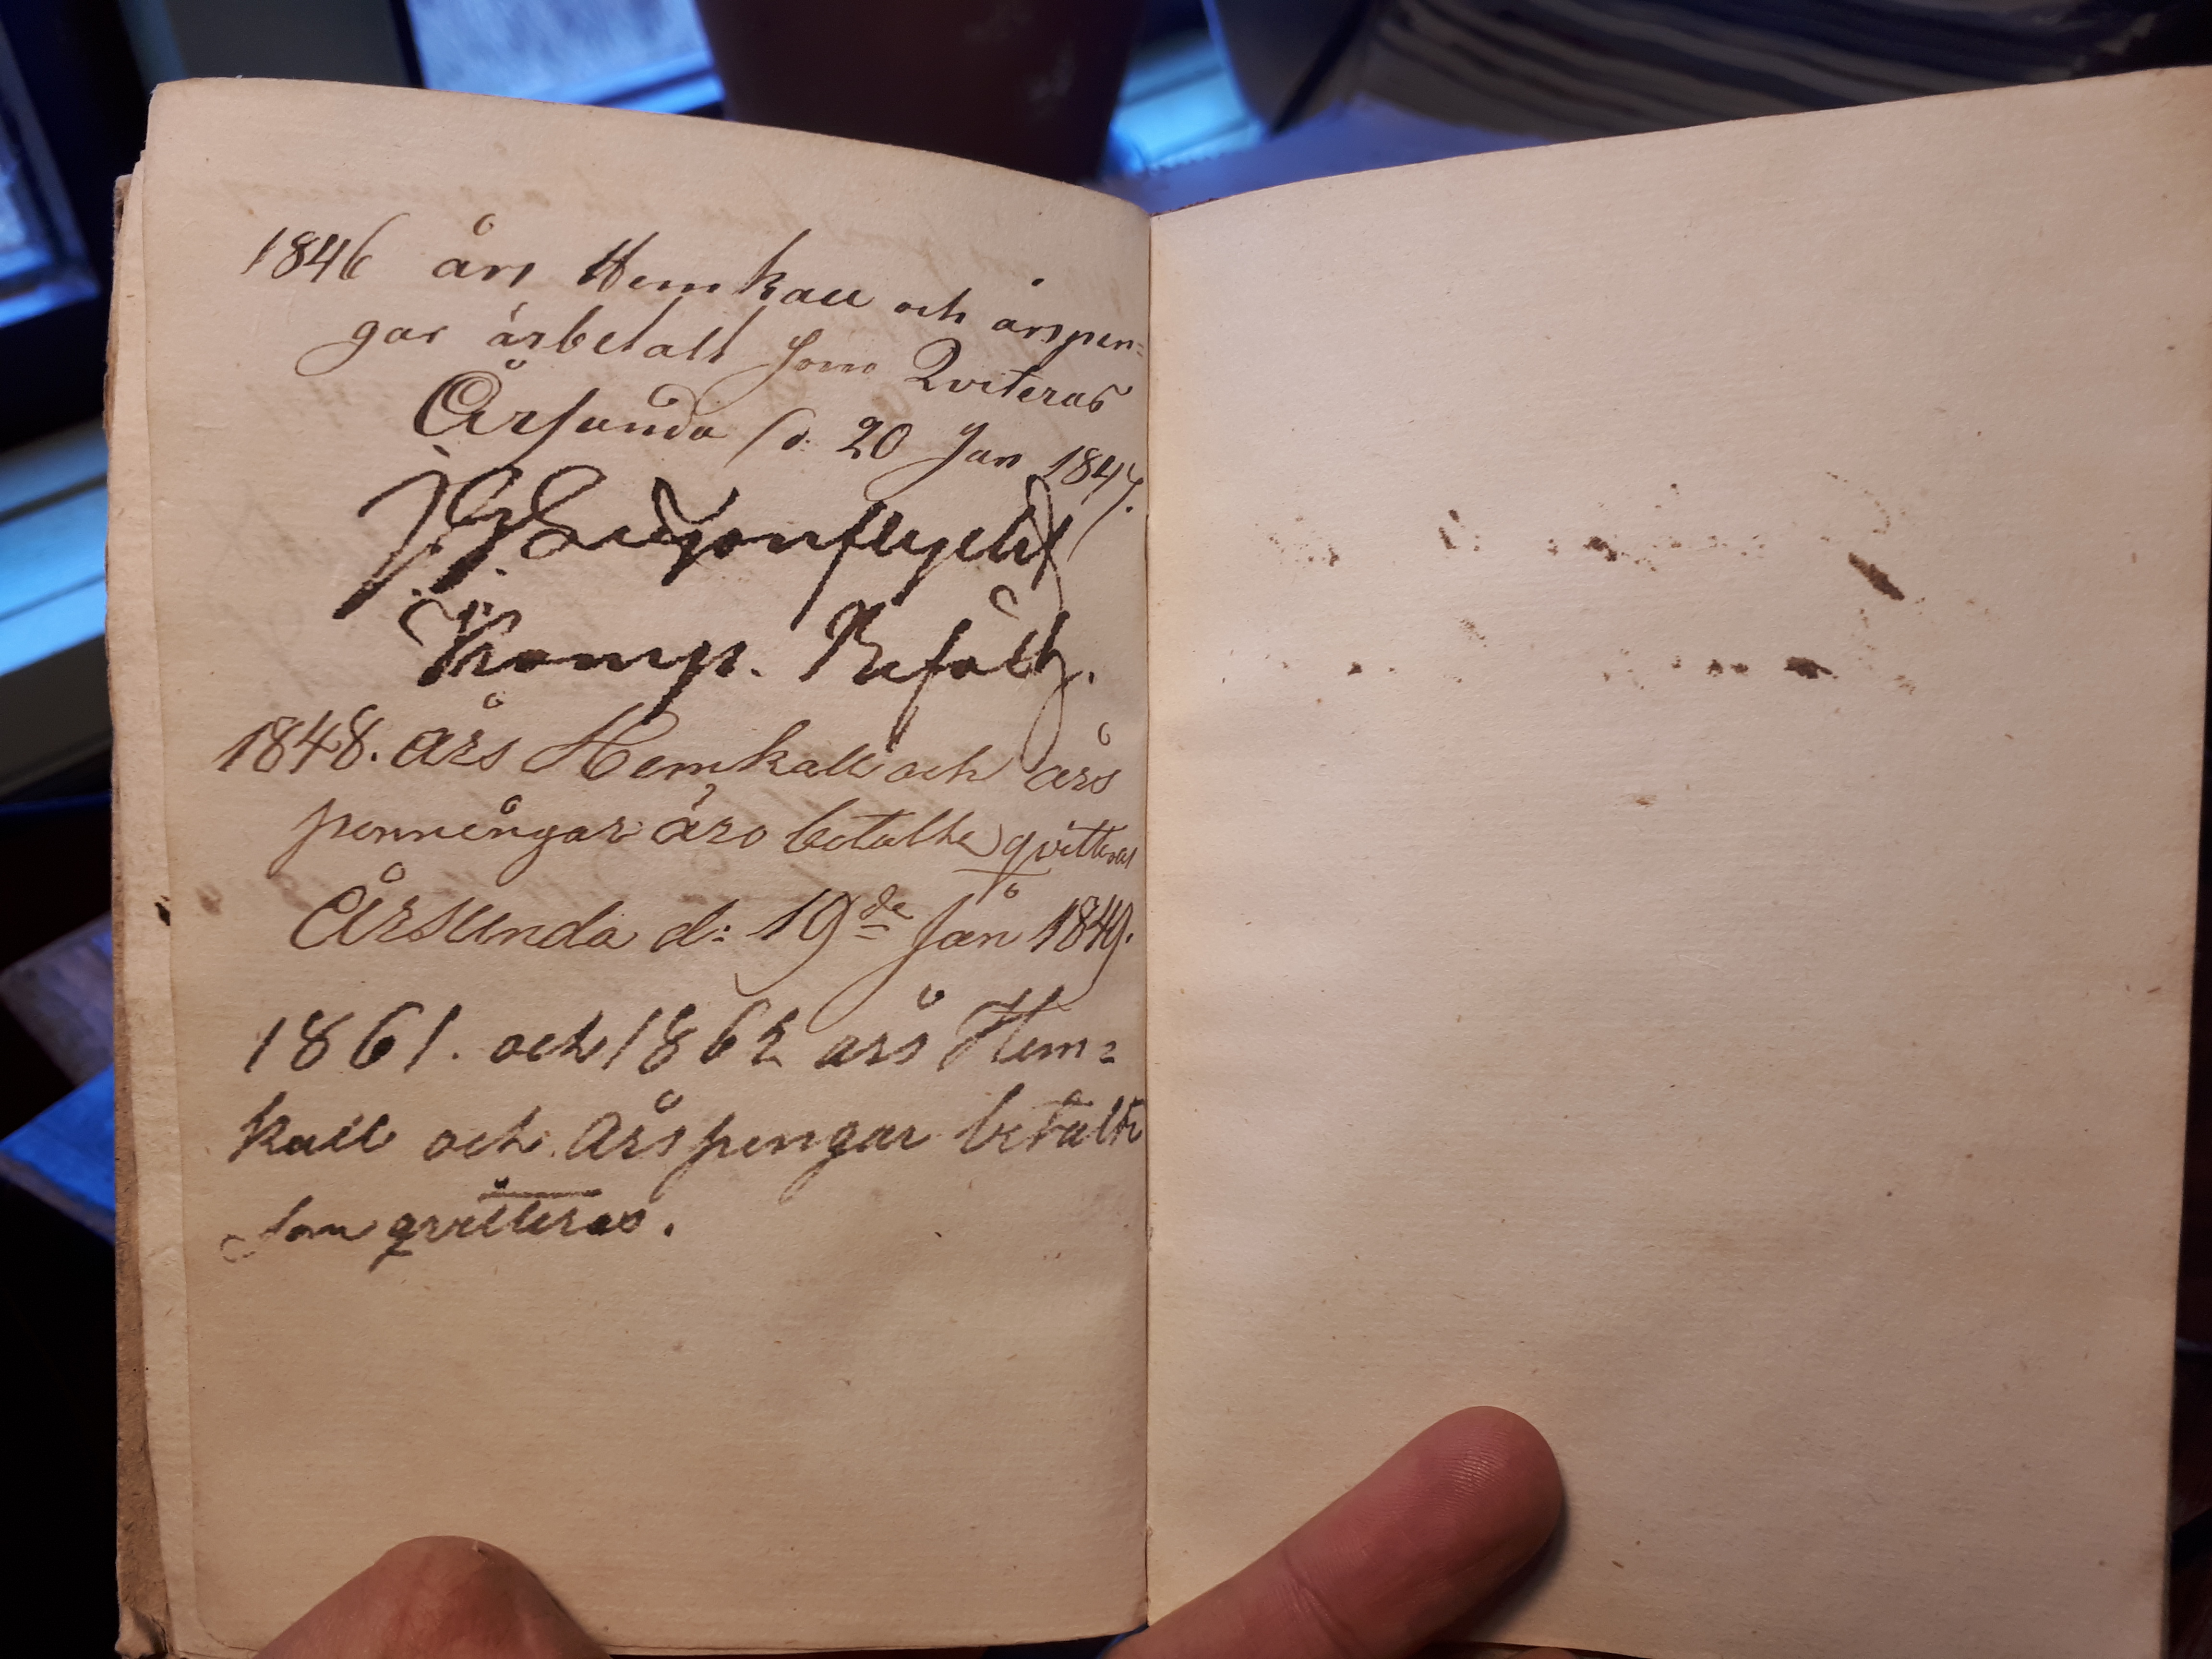 1846 års Hemkall och årspen=
gar är betalt som Qviteras
Årsunda d. 20 Jan 1847.
Komp. Befälh.
1848. års Hemkall och års
penningar äro betalte qvitteras
Årsunda d: 19de Jan 1849.
1861. och 1862 års Hem=
kall och Årspengar betalte
som qvitteras.